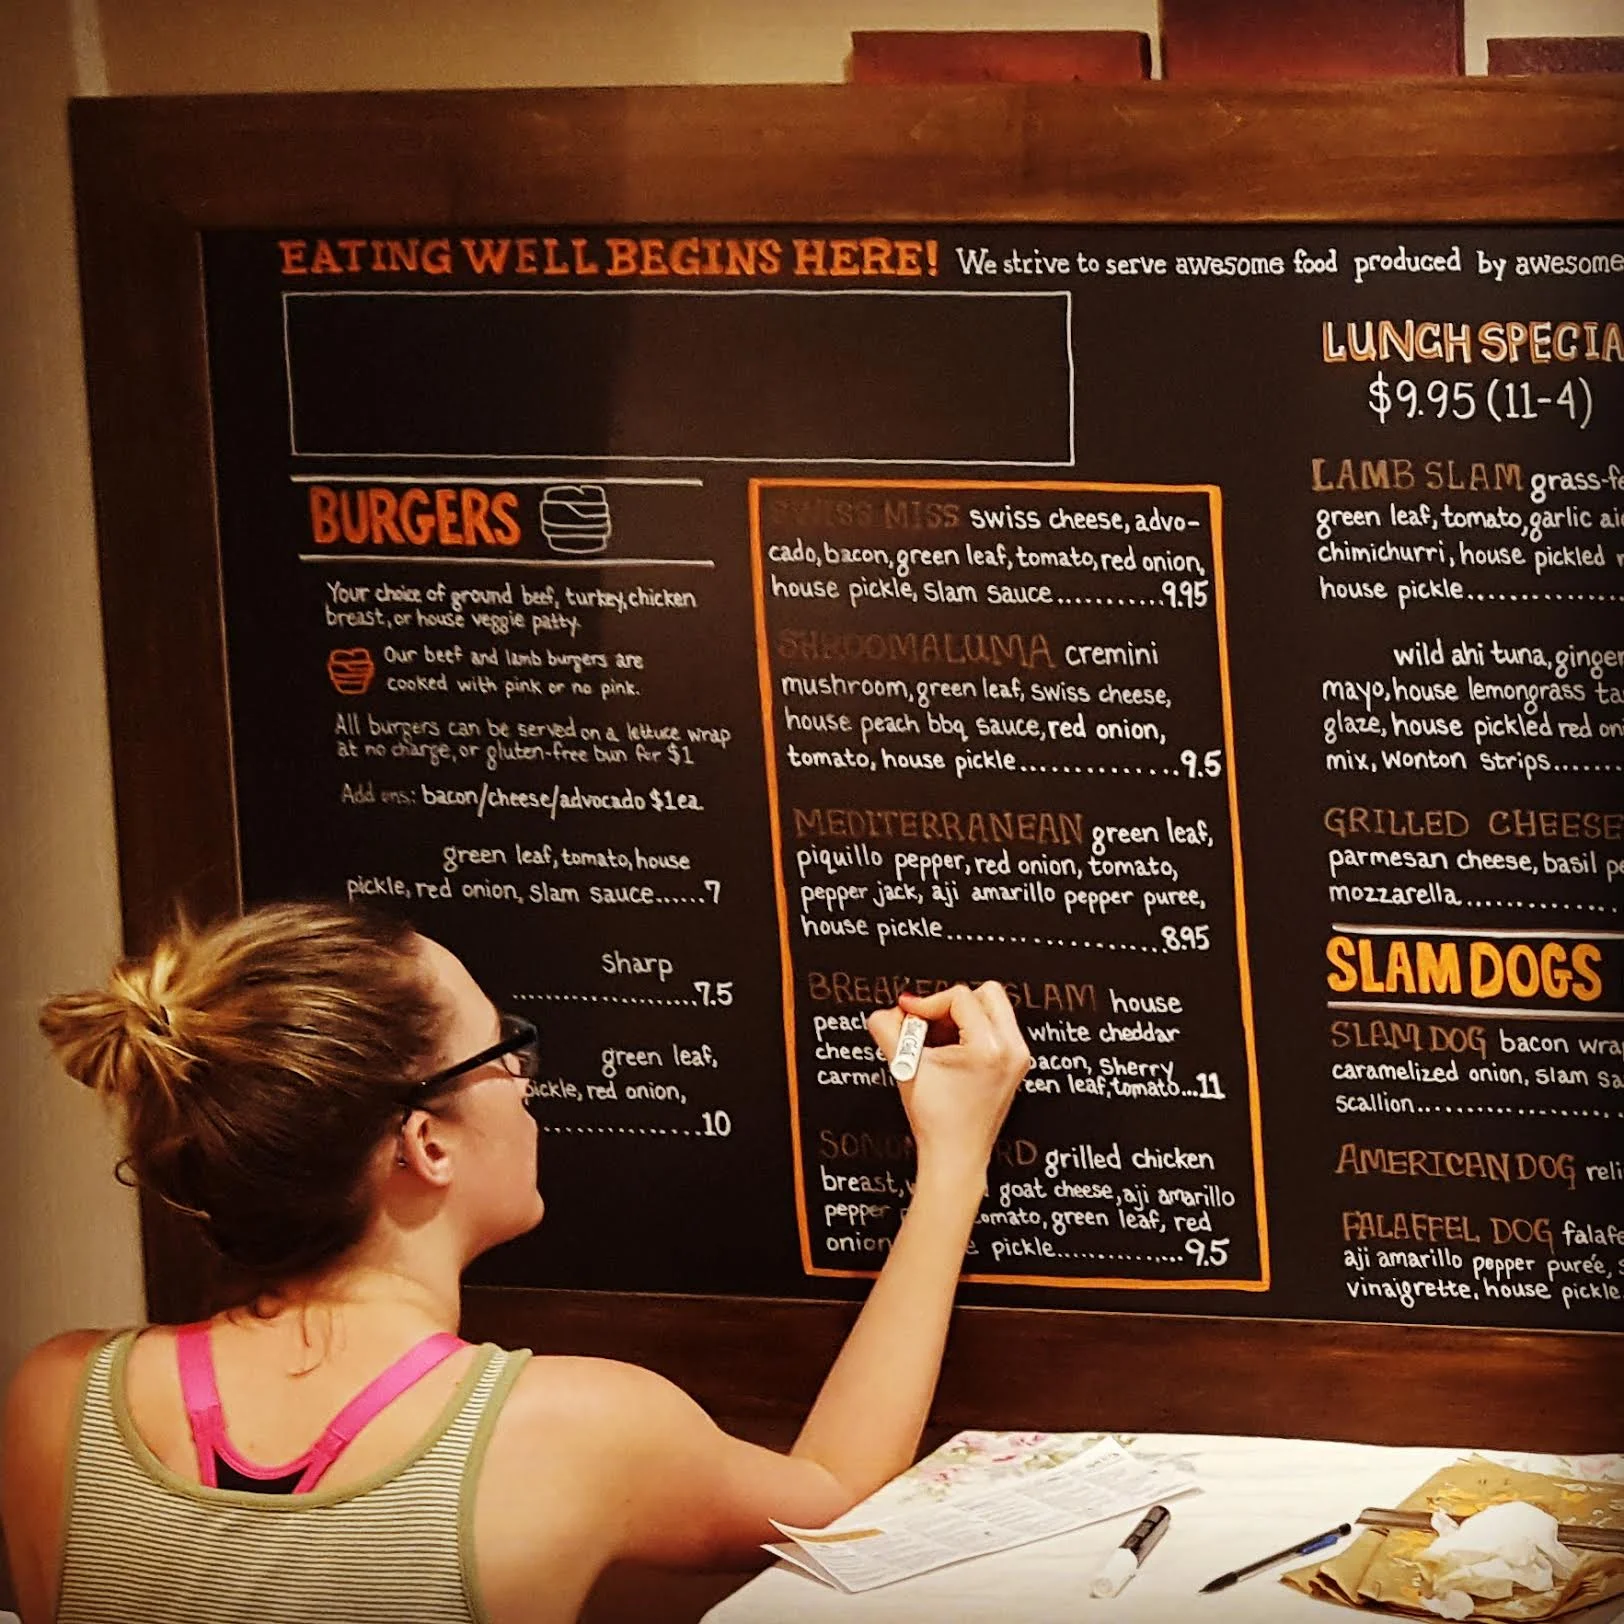 EATING WELL BEGINS HERE! We strive to serve awesome food produced by awesome
BURGERS
Your choice of ground beef, turkey, chicken
breast, or house veggie patty.
Our beef and lamb burgers are
cooked with pink or no pink.
All burgers can be served on a lettuce wrap
at no charge, or gluten-free bun for $1
Add ons: bacon/cheese/advocado $1ea.
green leaf, tomato, house
pickle, red onion, slam sauce......7
sharp
....................7.5
green leaf,
pickle, red onion,
.................10
SWISS MISS swiss cheese, advo-
cado, bacon, green leaf, tomato, red onion,
house pickle, slam sauce...........9.95
SHROOMALUMA cremini
mushroom, green leaf, swiss cheese,
house peach bbq sauce, red onion,
tomato, house pickle...............9.5
MEDITERRANEAN green leaf,
piquillo pepper, red onion, tomato,
pepper jack, aji amarillo pepper puree,
house pickle.....................8.95
BREAKFAST SLAM house
peach white cheddar
cheese bacon, sherry
green leaf, tomato...11
grilled chicken
breast, goat cheese, aji amarillo
pepper tomato, green leaf, red
onion pickle..............9.5
LUNCH SPECIA
$9.95 (11-4)
LAMB SLAM grass-fe
green leaf, tomato, garlic aio
chimichurri, house pickled
house pickle...............
wild ahi tuna, ginger
mayo, house lemongrass ta
glaze, house pickled red on
mix, wonton strips.......
GRILLED CHEESE
parmesan cheese, basil pe
mozzarella..............
SLAM DOGS
SLAM DOG bacon wra
caramelized onion, slam sa
scallion...................
AMERICAN DOG reli
FALAFFEL DOG falafe
aji amarillo pepper purée,
vinaigrette, house pickle